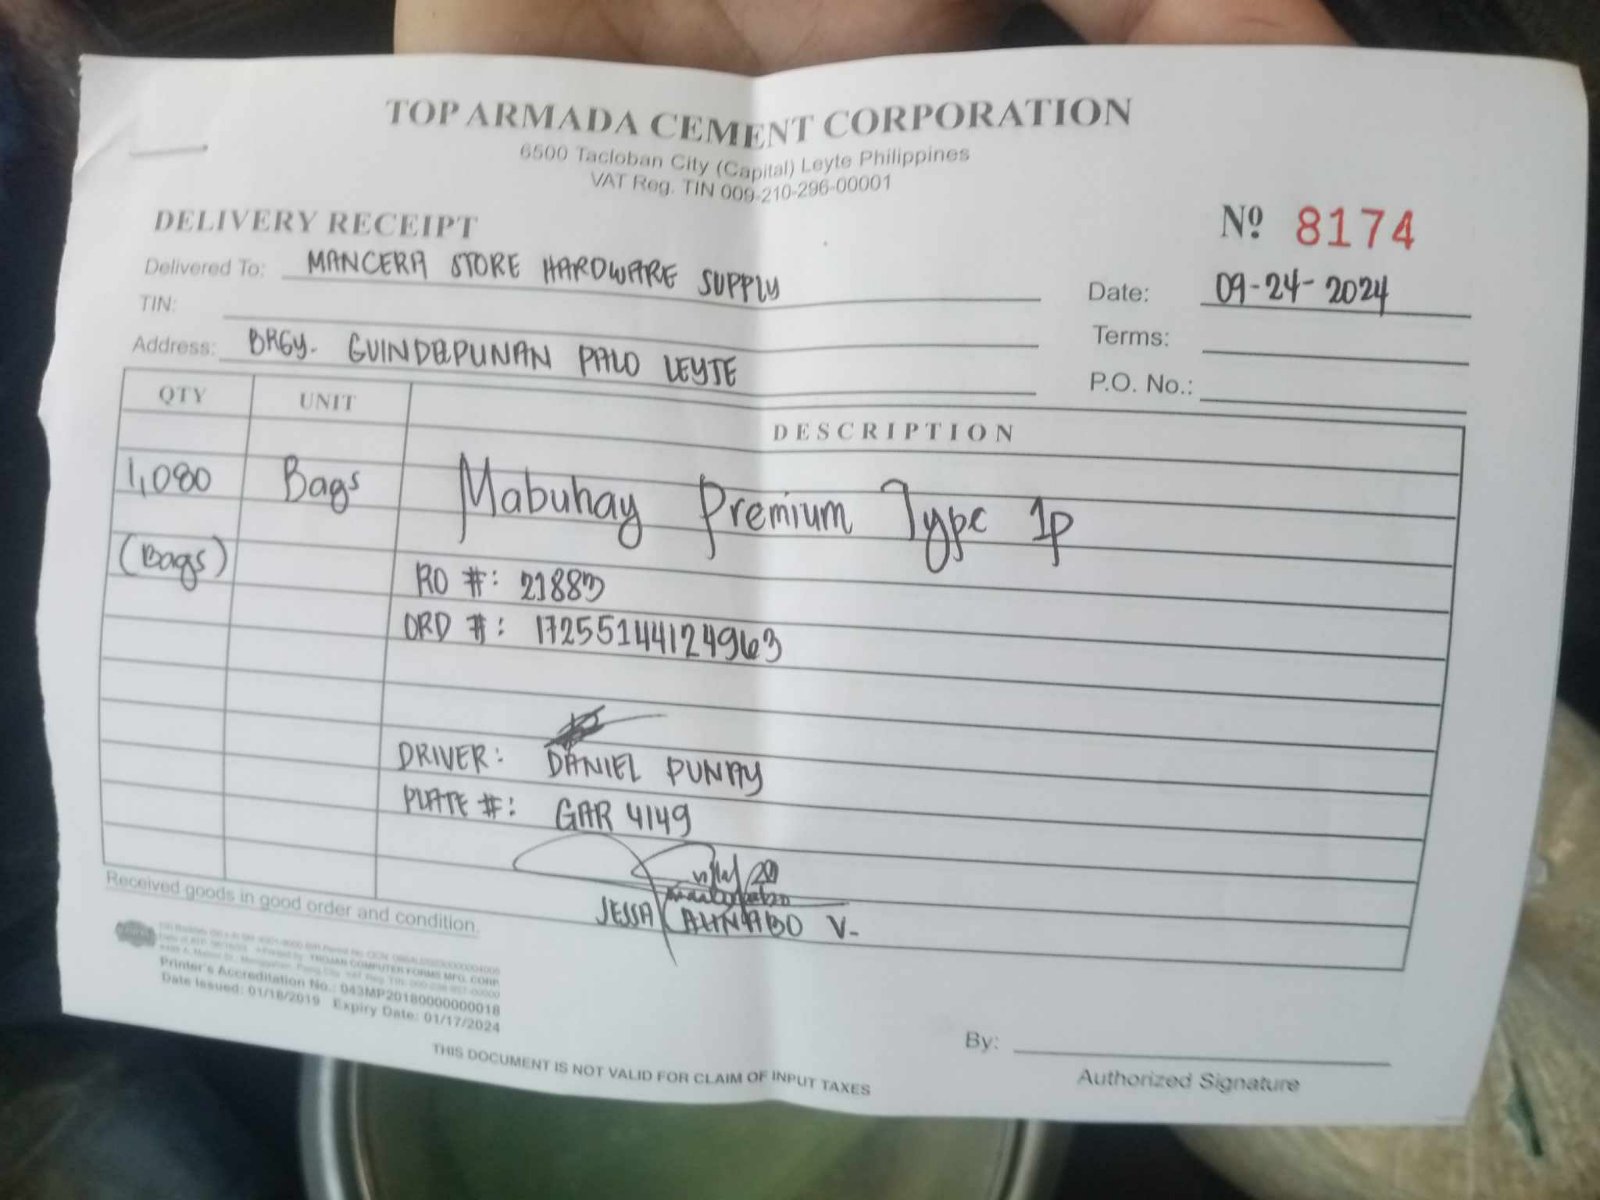 TOP ARMADA CEMENT CORPORATION
6500 Tacloban City (Capital) Leyte Philippines
VAT Reg. TIN 009-210-296-00001
DELIVERY RECEIPT
Nº 8174
Delivered To: MANCERA STORE HARDWARE SUPPLY
Date: 09-24-2024
TIN:
Terms:
Address: BRGY. GUINDAPUNAN PALO LEYTE
P.O. No.:
QTY UNIT DESCRIPTION
1,080 Bags Mabuhay Premium Type 1p
(Bags)
RO #: 21883
ORD #: 17255144124963
DRIVER: DANIEL PUNAY
PLATE #: GAR 4149
JESSA V.
Received goods in good order and condition.
TROJAN COMPUTER FORMS MFG. CORP.
Printer's Accreditation No.: 043MP20180000000018
Date Issued: 01/18/2019 Expiry Date: 01/17/2024
By:
Authorized Signature
THIS DOCUMENT IS NOT VALID FOR CLAIM OF INPUT TAXES